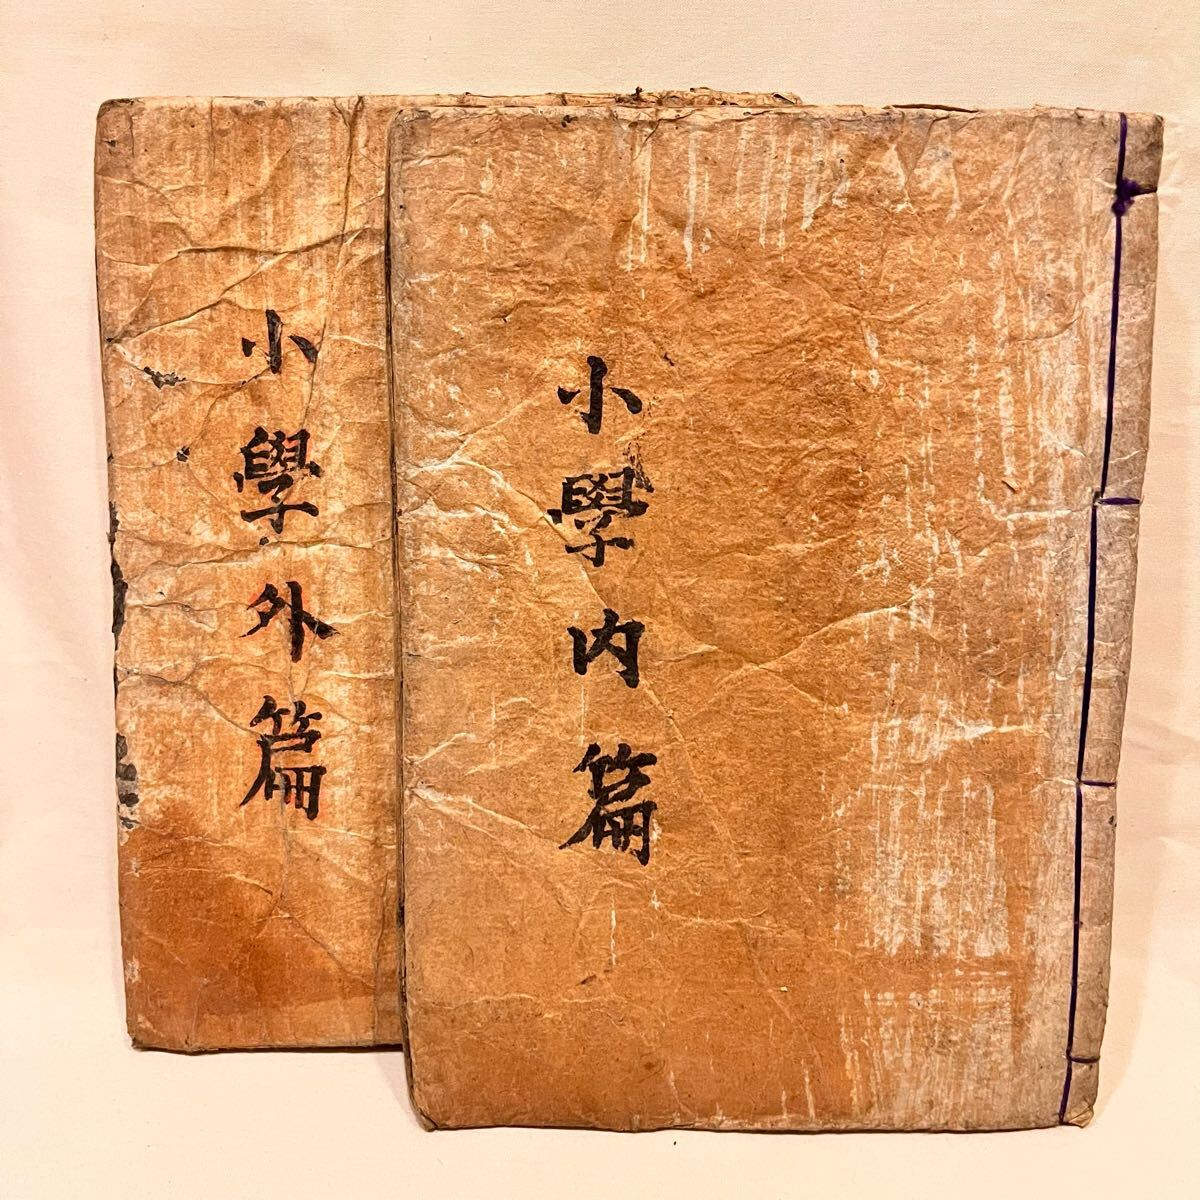 小學內篇
小學外篇